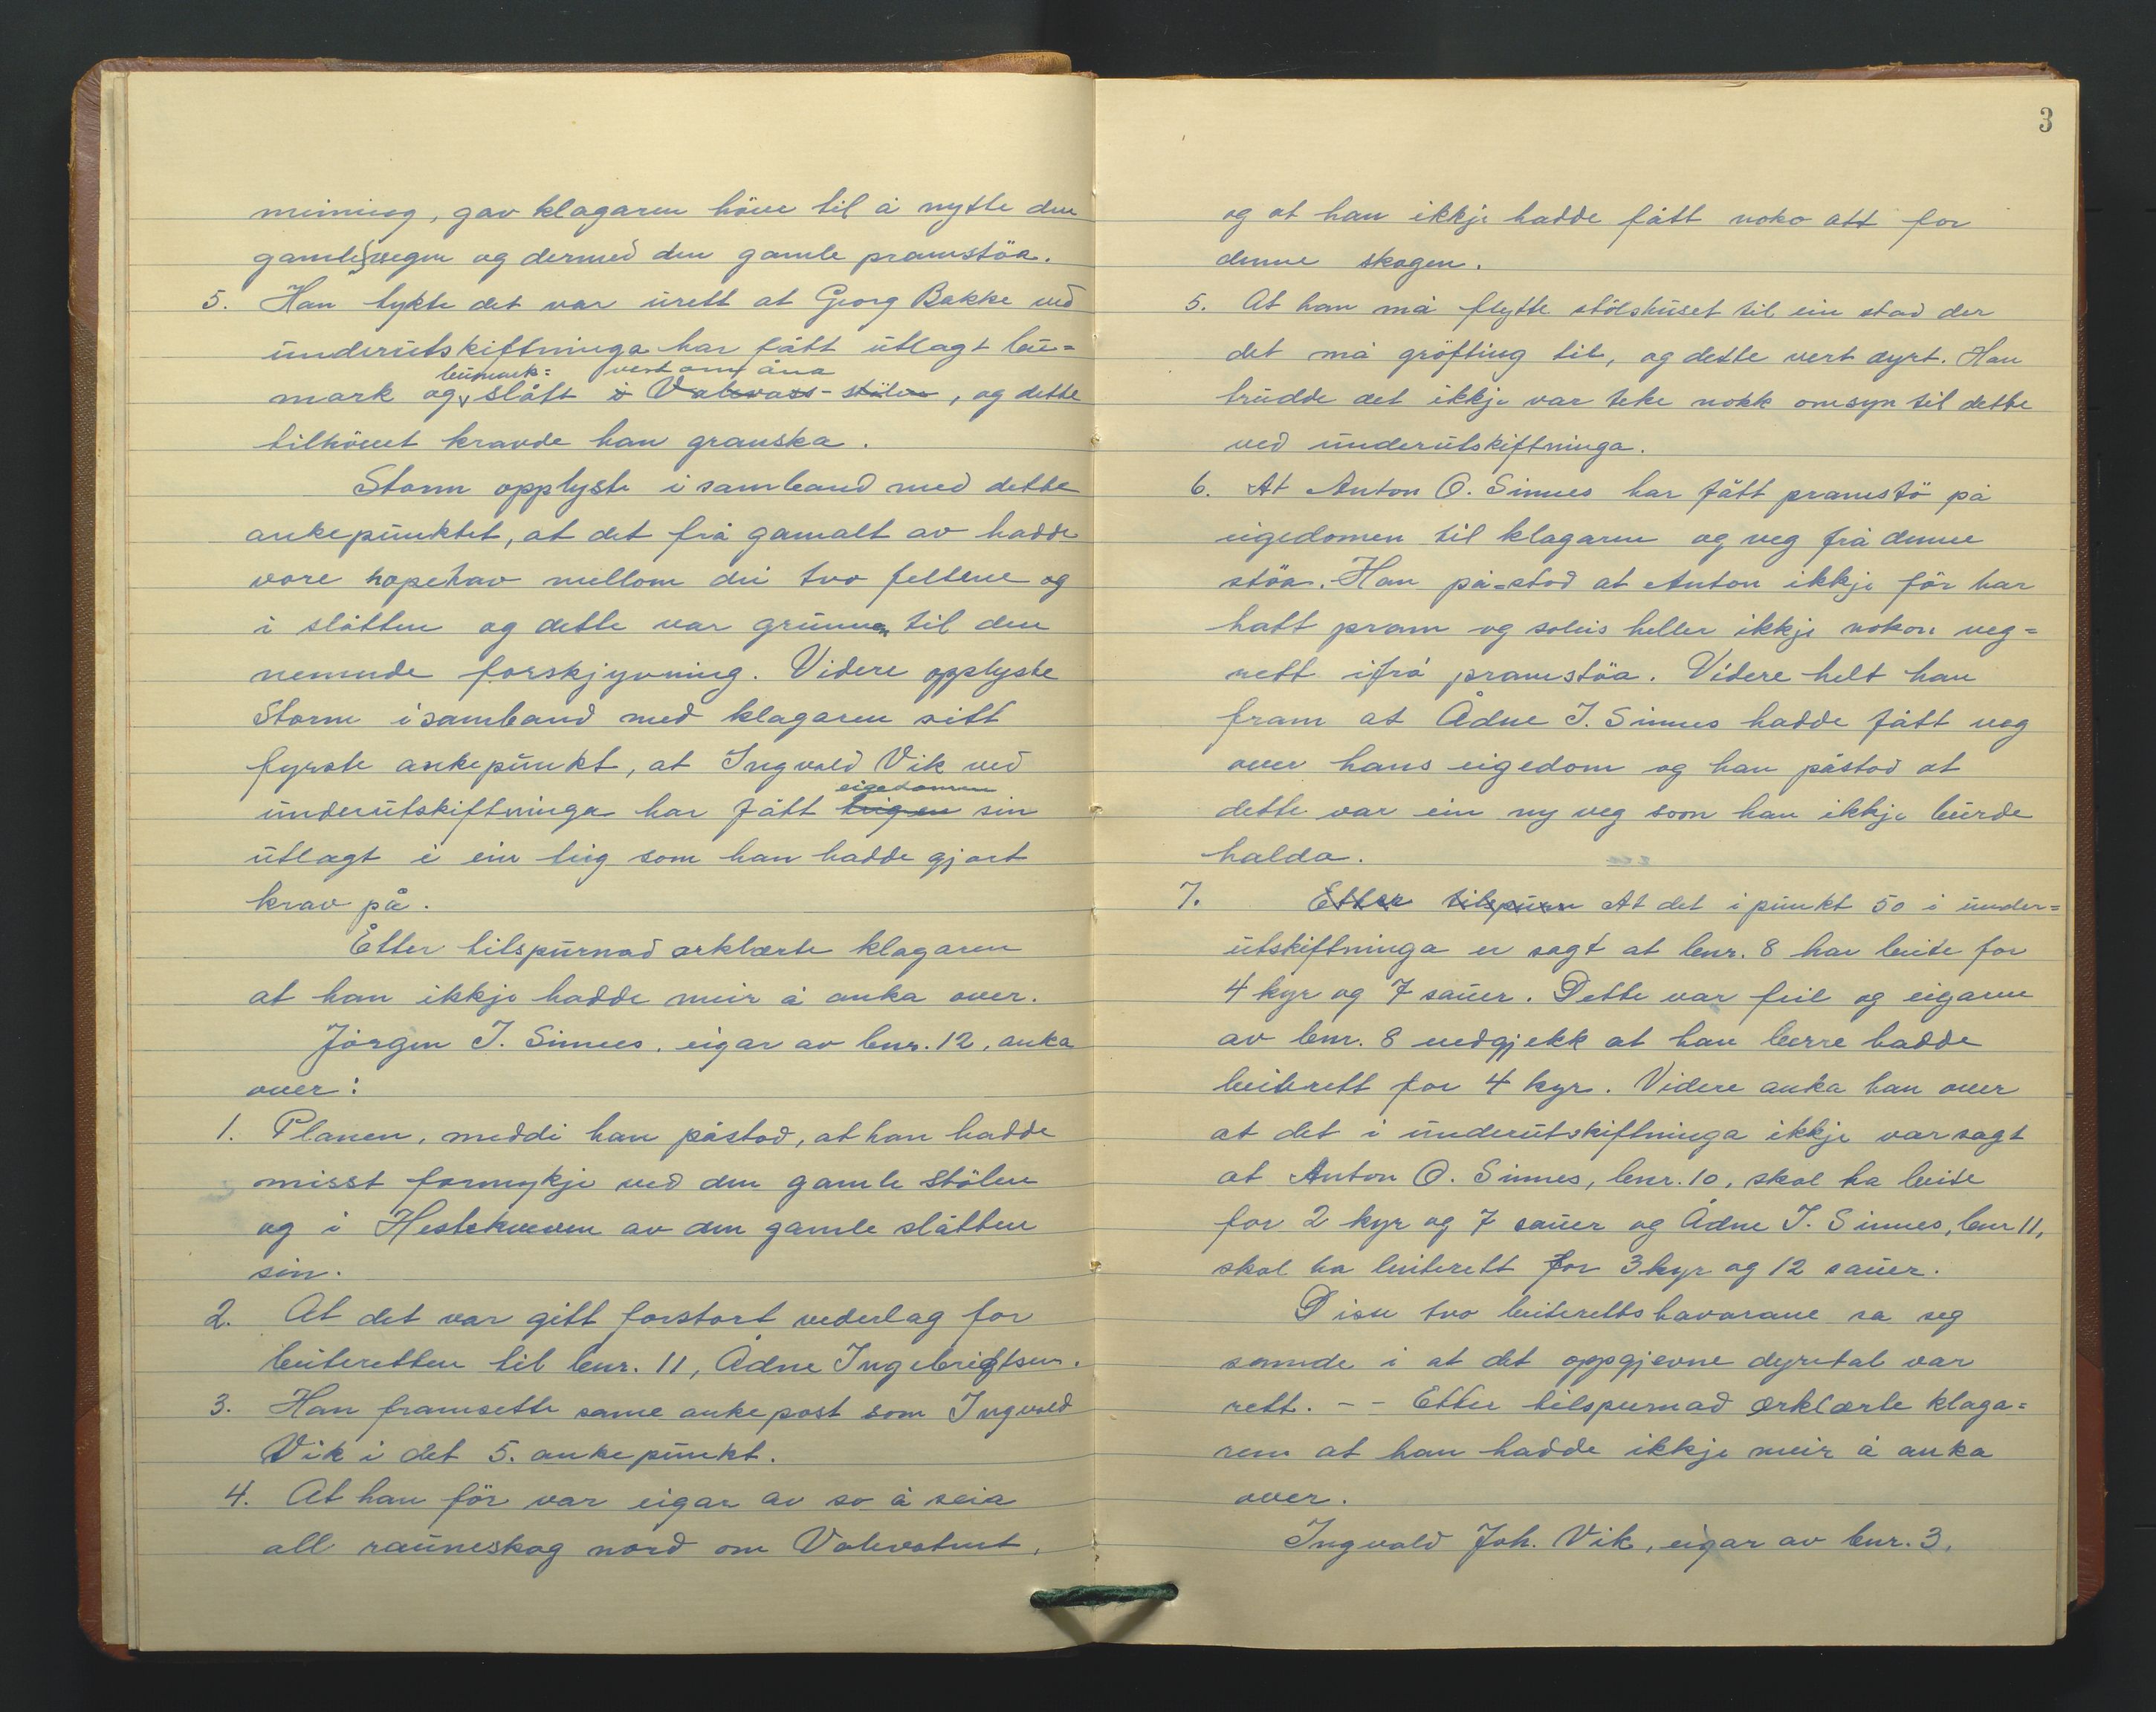 meining, gav klagaren höve til å nytte den
gamle vegen og dermed den gamle pramstöa.
5. Han tykte det var urett at Georg Bakke ved
underutskiftninga har fått utlagt bu=
bumark= vest om åna
mark og slått i Valevass-stölen, og dette
tilhövet kravde han granska.
Storm opplyste i samband med dette
ankepunktet, at det frå gamalt av hadde
vore hopehav mellom dei tvo feltene og
i slåtten og dette var grunnen til den
nemnde forskjyvning. Videre opplyste
Storm i samband med klagaren sitt
fyrste ankepunkt, at Ingvald Vik ved
eigedomen
underutskiftninga har fått teigen sin
utlagt i ein teig som han hadde gjort
krav på.
Etter tilspurnad erklærte klagaren
at han ikkje hadde meir å anka over.
Jörgen I. Sinnes, eigar av bnr. 12, anka
over:
1. Planen, meddi han påstod, at han hadde
misst formykje ved den gamle stölen
og i Hestekveven av den gamle slåtten
sin.
2. At det var gitt forstort vederlag for
beiteretten til bnr. 11, Ådne Ingebrigtsen.
3. Han framsette same ankepost som Ingvald
Vik i det 5. ankepunkt.
4. At han för var eigar av so å seia
all rauneskog nord om Valevatnet,
3
og at han ikkje hadde fått noko att for
denne skogen.
5. At han må flytte stölshuset til ein stad der
det må gröfting til, og dette vert dyrt. Han
trudde det ikkje var teke nokk omsyn til dette
ved underutskiftninga.
6. At Anton O. Sinnes har fått pramstö på
eigedomen til klagaren og veg frå denne
stöa. Han på=stod at Anton ikkje för har
hatt pram og soleis heller ikkje nokon veg=
rett ifrå pramstöa. Videre helt han
fram at Ådne I. Sinnes hadde fått veg
over hans eigedom og han påstod at
dette var ein ny veg som han ikkje burde
halda.
7. Etter tilspurn At det i punkt 50 i under=
utskiftninga er sagt at bnr. 8 har beite for
4 kyr og 7 sauer. Dette var feil og eigaren
av bnr. 8 vedgjekk at han berre hadde
beiterett for 4 kyr. Videre anka han over
at det i underutskiftninga ikkje var sagt
at Anton O. Sinnes, bnr. 10, skal ha beite
for 2 kyr og 7 sauer og Ådne I. Sinnes, bnr 11,
skal ha beiterett for 3 kyr og 12 sauer.
Disse tvo beiterettshavarane sa seg
samde i at det oppgjevne dyretal var
rett. - - Etter tilspurnad erklærte klaga=
ren at han hadde ikkje meir å anka
over.
Ingvald Joh. Vik, eigar av bnr. 3,